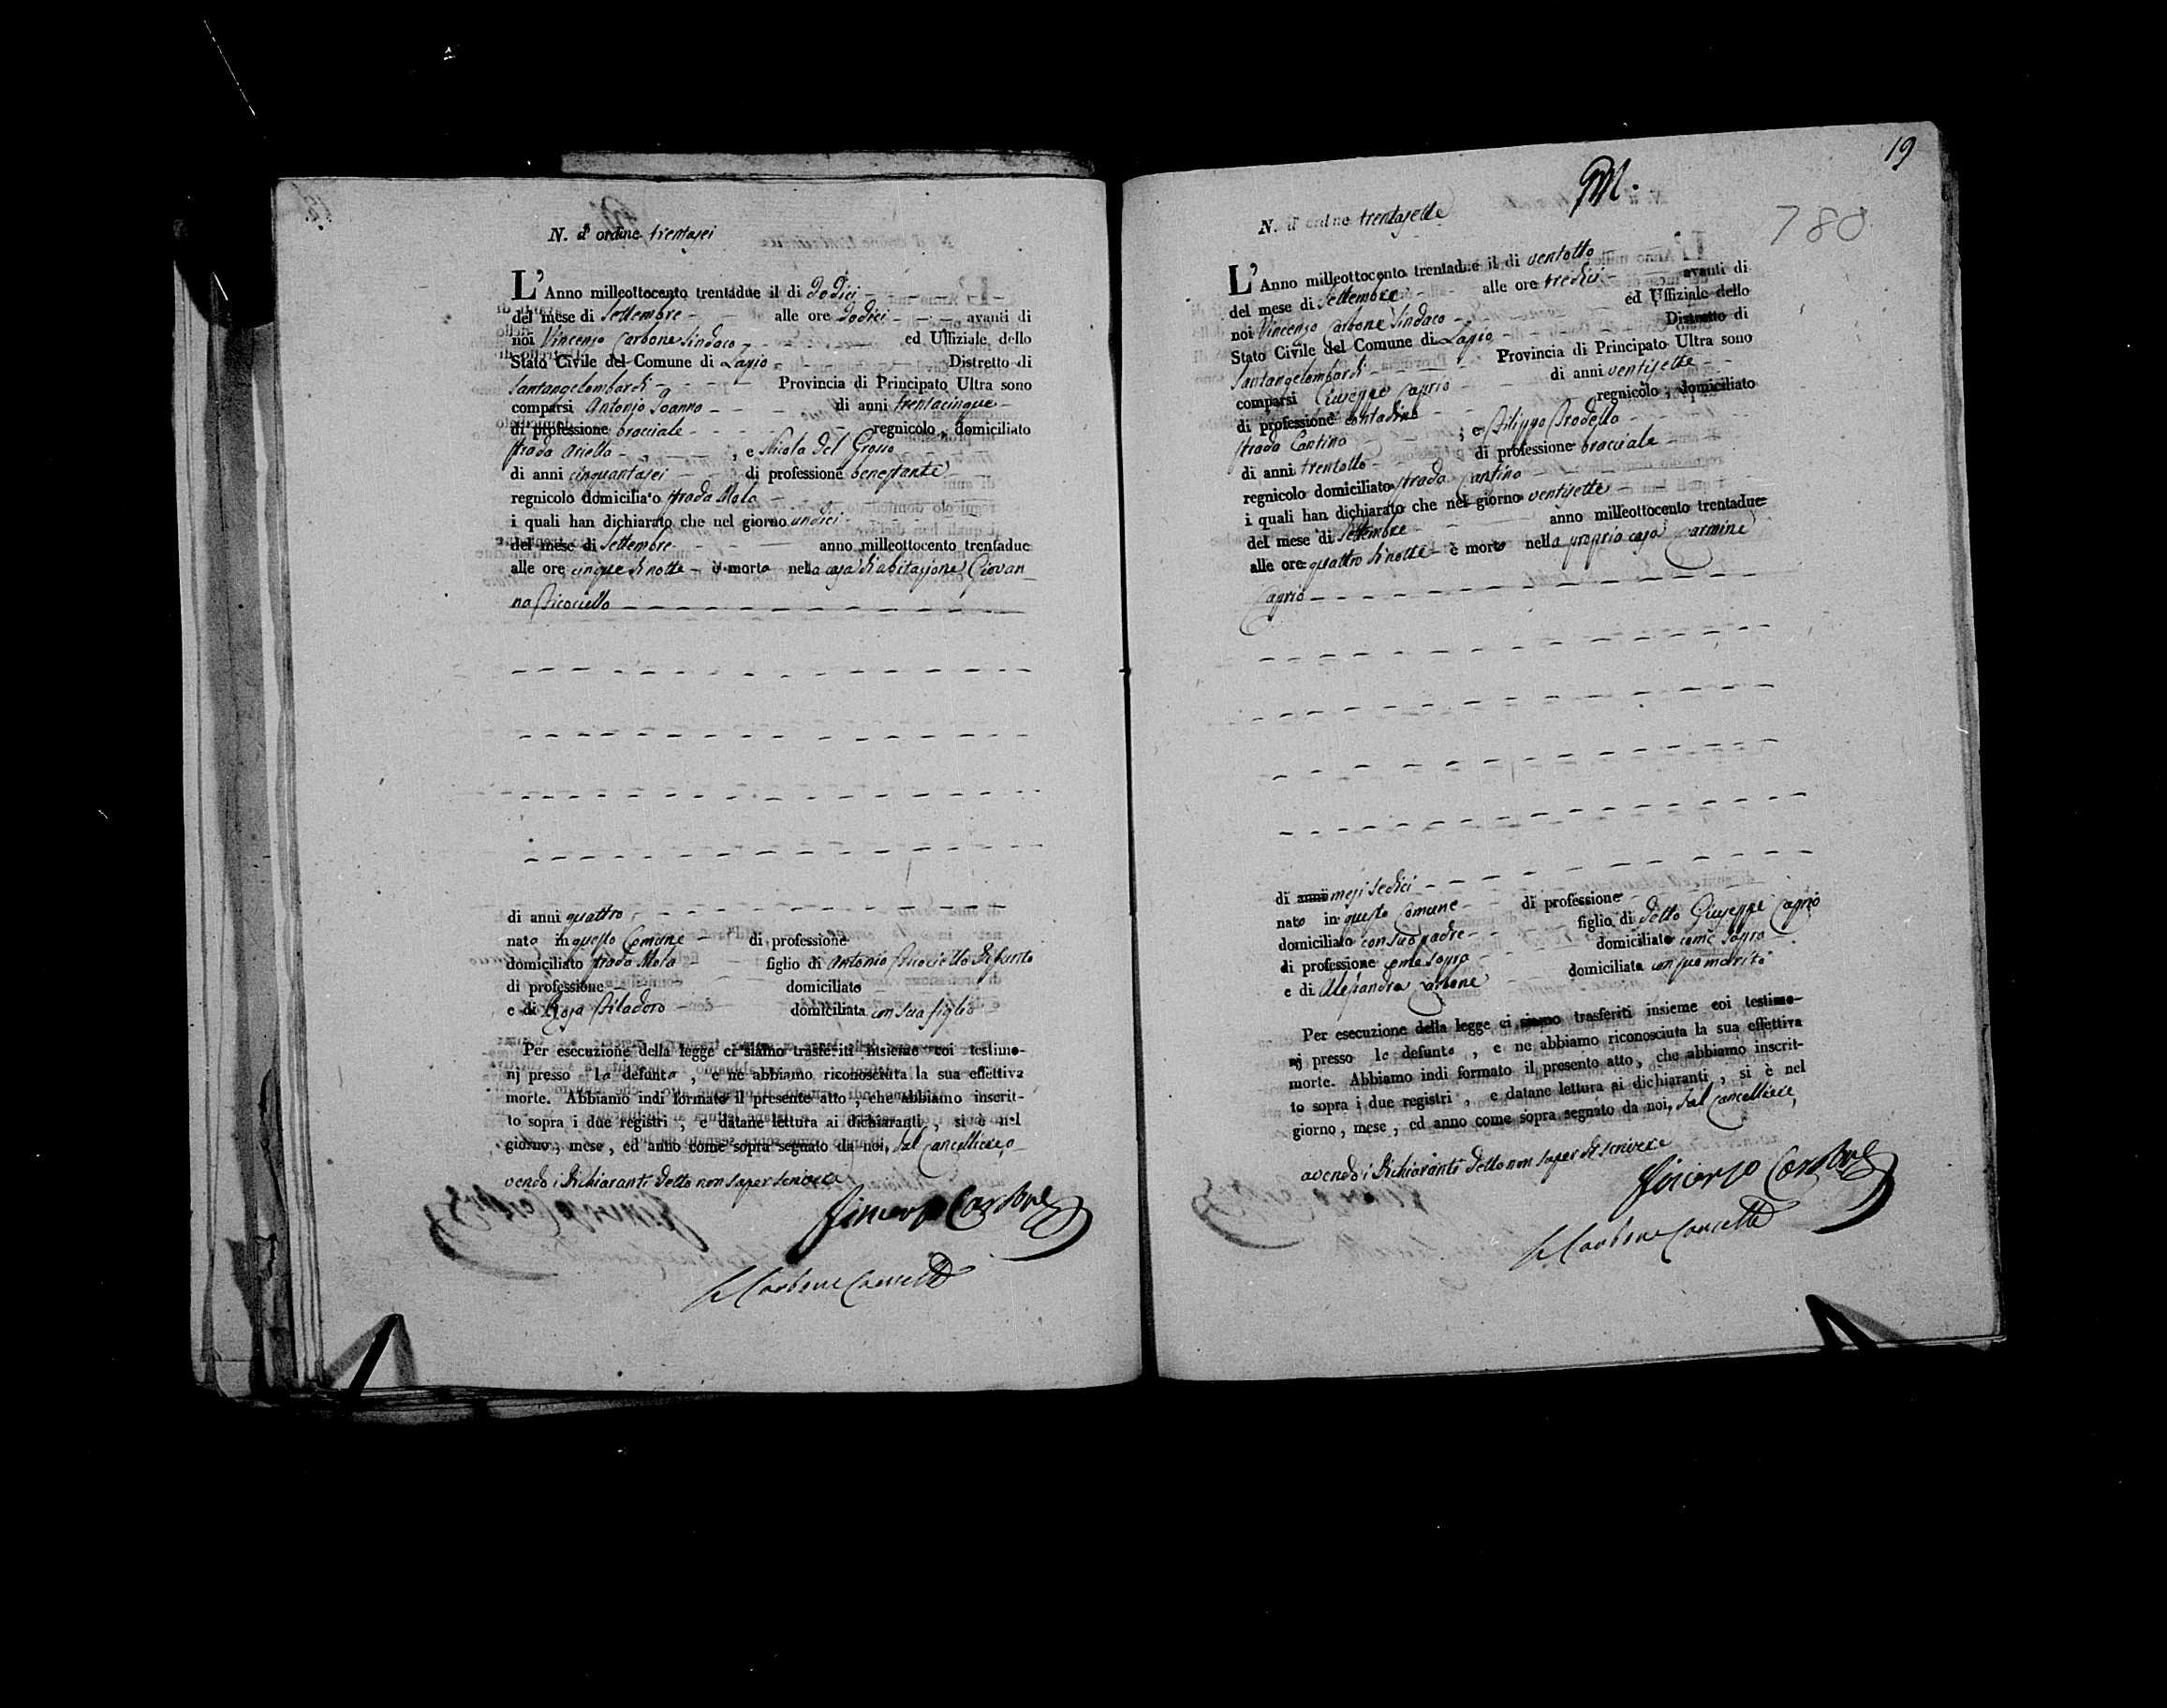 N. d' ordine trentasei
L' Anno milleottocento trentadue il di dodici
del mese di Settembre alle ore dodici avanti di
noi Vincenzo Carbone Sindaco ed Uffiziale dello
Stato Civile del Comune di Lapio Distretto di
Santangelombardi Provincia di Principato Ultra sono
comparsi Antonio Joanno di anni trentacinque
di professione bracciale regnicolo, domiciliato
strada Ariella, e Nicola del Grosso
di anni cinquantasei di professione benestante
regnicolo domiciliato strada Mola
i quali han dichiarato che nel giorno undici
del mese di Settembre anno milleottocento trentadue
alle ore cinque di notte è morta nella casa di abitazione Giovan
na
di anni quattro
nata in questo Comune di professione
domiciliato strada Mola figlio di Antonio defunto
di professione domiciliato
e di Rosa domiciliata con sua figlia
Per esecuzione della legge ci siamo trasferiti insieme coi testimo-
nj presso la defunta, e ne abbiamo riconosciuta la sua effettiva
morte. Abbiamo indi formato il presente atto, che abbiamo inscrit-
to sopra i due registri, e datane lettura ai dichiaranti, si è nel
giorno, mese, ed anno come sopra segnato da noi, dal Cancelliere, a-
vendo i dichiaranti detto non saper scrivere
Vincenzo Carbone
Carbone Cancell
19
780
N. d' ordine trentasette
L' Anno milleottocento trentadue il di ventotto
del mese di Settembre alle ore tredici avanti di
noi Vincenzo Carbone Sindaco ed Uffiziale dello
Stato Civile del Comune di Lapio Distretto di
Santangelombardi Provincia di Principato Ultra sono
comparsi Giuseppe Caprio di anni ventisette
di professione contadino regnicolo, domiciliato
strada Cantino; e Filippo Brodella
di anni trentotto di professione bracciale
regnicolo domiciliato strada Cantino
i quali han dichiarato che nel giorno ventisette
del mese di Settembre anno milleottocento trentadue
alle ore quattro di notte è morto nella propria casa Carmine
Caprio
di anni mesi sedici di professione
nato in questo Comune figlio di detto Giuseppe Caprio
domiciliato con suo padre domiciliato come sopra
di professione come sopra
e di Alesandra Carbone domiciliata con suo marito
Per esecuzione della legge ci siamo trasferiti insieme coi testimo-
nj presso lo defunto, e ne abbiamo riconosciuta la sua effettiva
morte. Abbiamo indi formato il presento atto, che abbiamo inscrit-
to sopra i due registri, e datane lettura ai dichiaranti, si è nel
giorno, mese, ed anno come sopra segnato da noi, dal Cancelliere,
avendo i dichiaranti detto non saper di scrivere
Vincenzo Carbone
Carbone Cancell